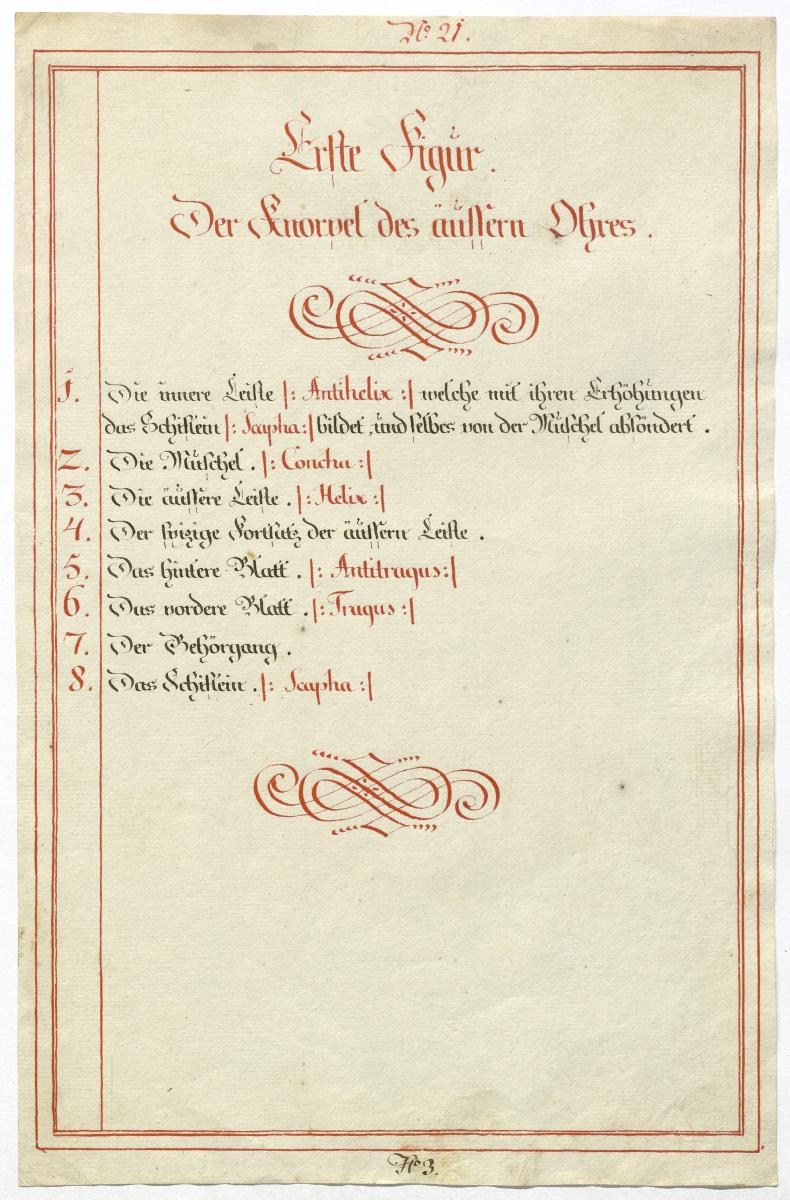 No 21.
Erste Figur.
Der Knorpel des äussern Ohres.
1. Die innere Leiste |: Antihelix :| welche mit ihren Erhöhungen
das Schiflein |: Scapha :| bildet, und selbes von der Muschel absöndert.
2. Die Muschel. |: Concha :|
3. Die äussere Leiste. |: Helix :|
4. Der spizige Fortsatz der äussern Leiste.
5. Das hintere Blatt. |: Antitragus :|
6. Das vordere Blatt. |: Tragus :|
7. Der Gehörgang.
8. Das Schiflein. |: Scapha :|
No 3.